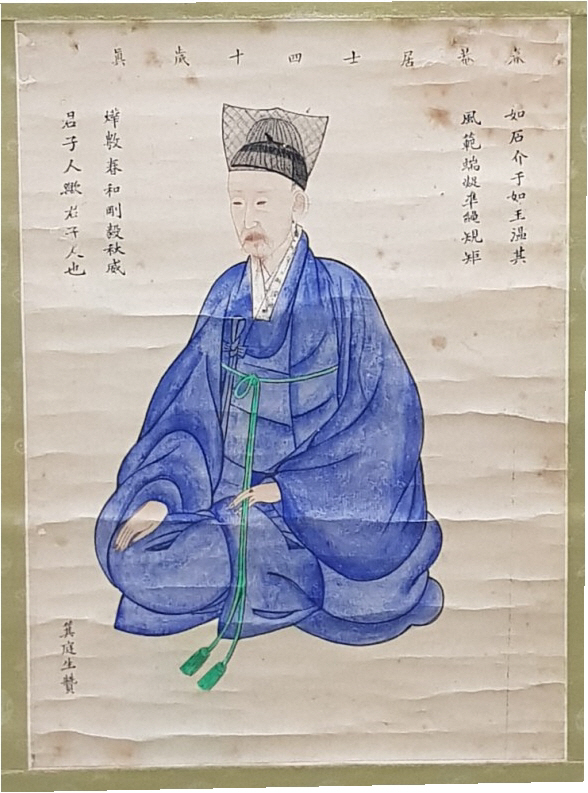 居士四十歲眞
如石介于如玉溫其
風範端凝準繩規矩
燁敷春和剛毅秋威
君子人歟君子人也
箕庭生贊